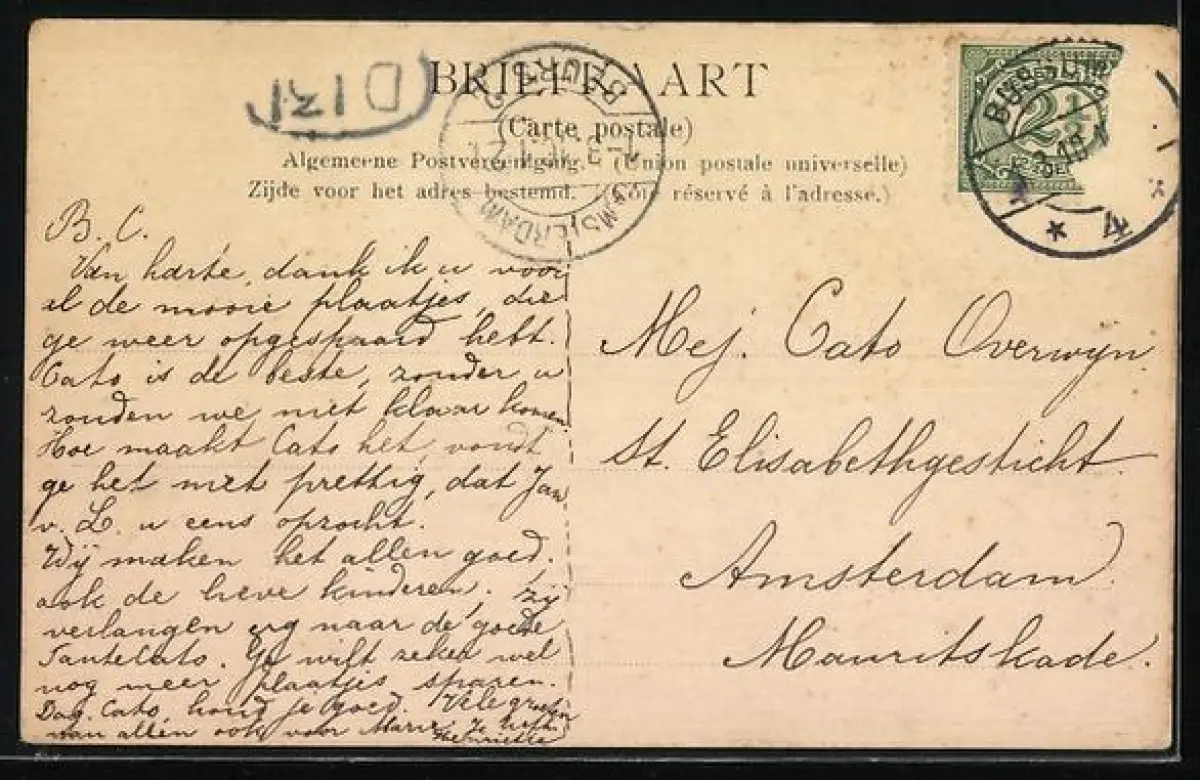 BRIEFKAART
(Carte postale)
Algemeene Postvereeniging. (Union postale universelle)
Zijde voor het adres bestemd. (Côté réservé à l'adresse.)
BUSSUM
2½
4
AMSTERDAM
B. C.
Van harte dank ik u voor
al de mooie plaatjes, die
ge weer opgespaard hebt.
Cato is de beste, zonder u
zouden we niet klaar komen
Hoe maakt Cato het, vondt
ge het niet prettig, dat Jan
v. L. u eens opzocht.
Wij maken het allen goed.
ook de lieve kinderen. Zij
verlangen erg naar de goede
Tante Cato. Ge wilt zeker wel
nog meer plaatjes sparen.
Dag. Cato houd je goed. Vele groeten
van allen ook voor Marie
Henriette
Mej. Cato Overwijn.
St. Elisabethgesticht.
Amsterdam.
Mauritskade.